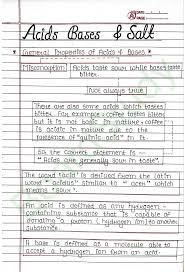 DATE
PAGE
Acids Bases & Salt
General Properties of Acids & Bases
Misconception
Acids taste sour while bases taste
bitter.
Not always true
There are also some acids which tastes
bitter. For example: coffee tastes bitter
but it is not basic in nature - coffee
is acidic in nature due to the
presence of "quinic acid" in it.
So the correct statement is -
"Acids are generally sour in taste".
The word "acid" is derived from the
Latin "acidus" similar to "acer" which
means "sour".
An acid is defined as any hydrogen-
containing substance that is capable of
donating a proton (hydrogen ion) to another
substance.
A base is defined as a molecule able to
accept a hydrogen ion from an